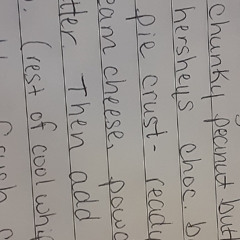 chunky peanut but
hersheys choc. b
pie crust - ready
eam cheese, powd
tter. Then add
. (rest of cool whi
Crush